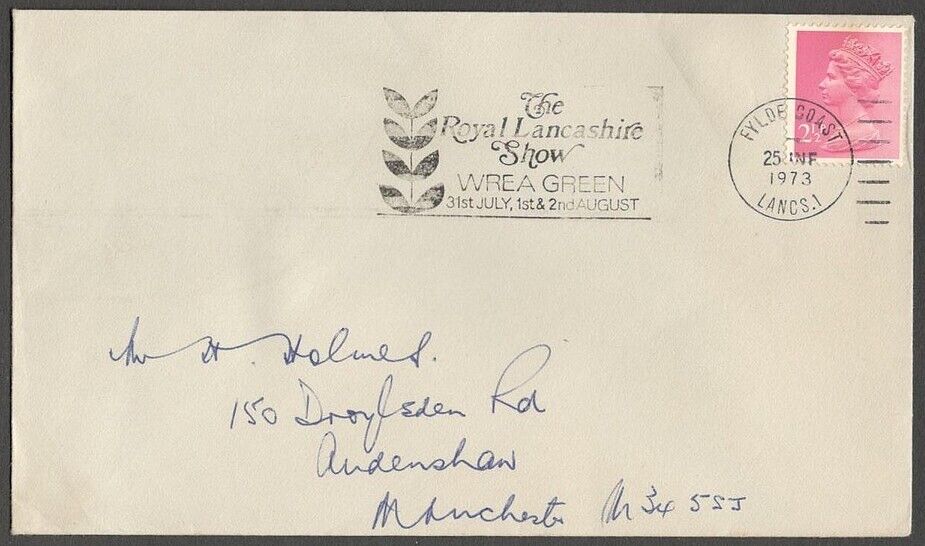 The
Royal Lancashire
Show
WREA GREEN
31st JULY, 1st & 2nd AUGUST
2½
FYLDE COAST
25
1973
LANCS.1
Mr H. Holmes.
150 Droylsden Rd
Audenshaw
Manchester M34 5SJ